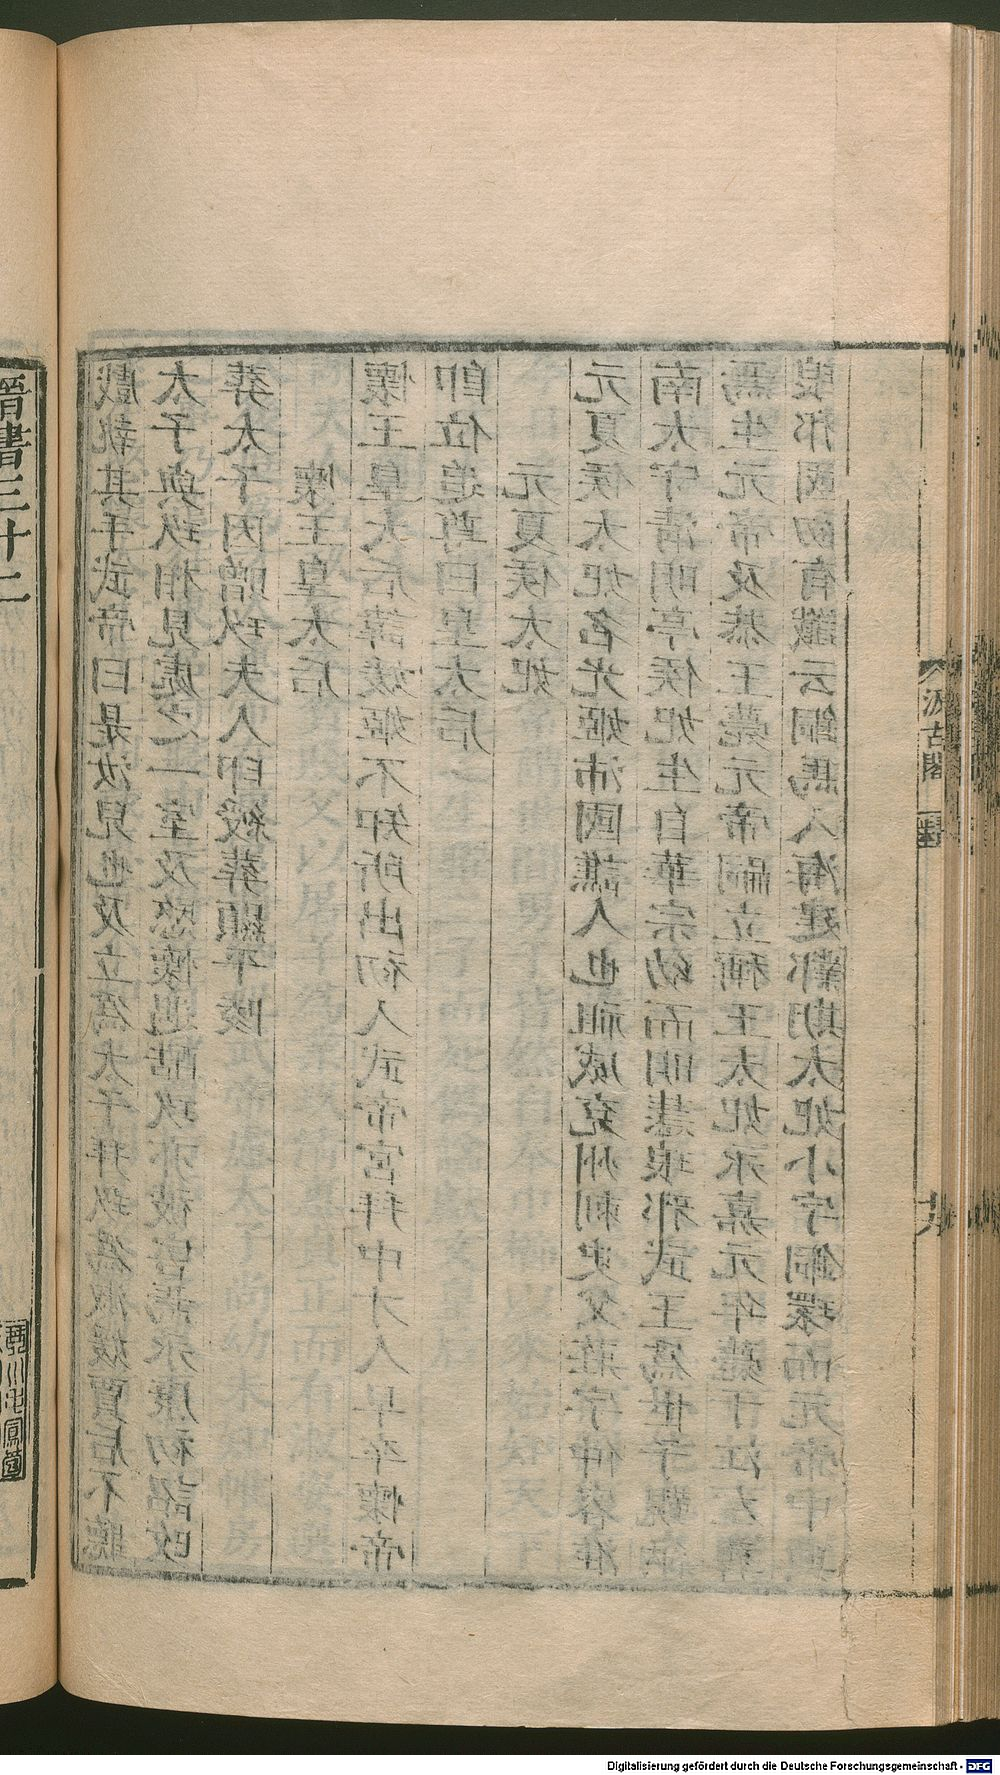 戲執其手武帝曰是汝兒也及立爲太子拜玖爲淑媛賈后不聽
太子與玖相見處之一室及愍懷遇酷玖亦被害焉永康初詔改
葬太子因贈玖夫人印綬葬顯平陵
懷王皇太后
懷王皇太后諱媛姬不知所出初入武帝宮拜中才人早卒懷帝
即位追尊曰皇太后
元夏侯太妃
元夏侯太妃名光姬沛國譙人也祖威兗州刺史父莊字仲容淮
南太守清明亭侯妃生自華宗幼而明慧琅邪武王爲世子覲納
焉生元帝及恭王薨元帝嗣立稱王太妃永嘉元年薨于江左葬
琅邪國初有讖云銅馬入海建鄴期太妃小字銅環而元帝中興
汲古閣
晉書三十二
Digitalisierung gefördert durch die Deutsche Forschungsgemeinschaft - DFG